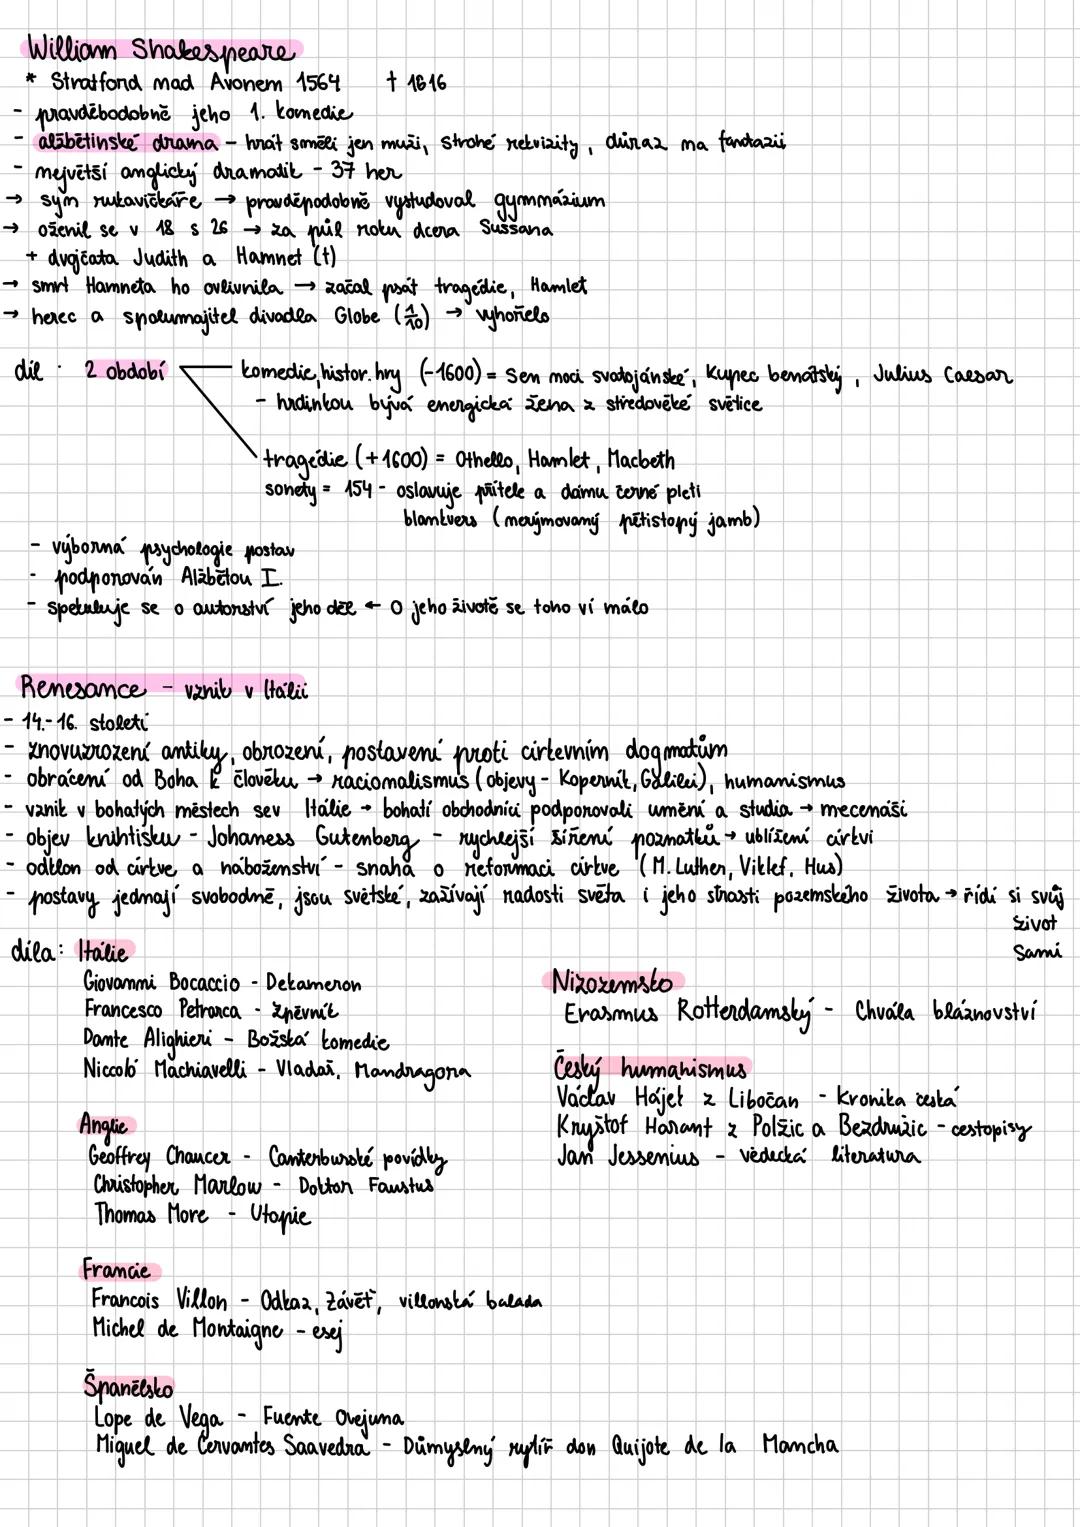 William Shakespeare
* Stratford nad Avonem 1564 † 1616
- pravděbodobně jeho 1. komedie
- alžbětinské drama - hrát směli jen muži, strohé rekvizity, důraz na fantazii
- největší anglický dramatik - 37 her
→ syn rukavičkáře → pravděpodobně vystudoval gymnázium
→ oženil se v 18 s 26 → za půl roku dcera Sussana
+ dvojčata Judith a Hamnet (†)
→ smrt Hamneta ho ovlivnila → začal psát tragédie, Hamlet
→ herec a spolumajitel divadla Globe (1/10) → vyhořelo
díl : 2 období
komedie, histor. hry (-1600) = Sen noci svatojánské, Kupec benátský, Julius Caesar
- hrdinkou bývá energická žena z středověké světice
tragédie (+1600) = Othello, Hamlet, Macbeth
sonety = 154 - oslavuje přítele a dámu černé pleti
blankvers (nerýmovaný pětistopý jamb)
- výborná psychologie postav
- podporován Alžbětou I.
- spekuluje se o autorství jeho děl ← o jeho životě se toho ví málo
Renesance - vznik v Itálii
- 14.-16. století
- znovuzrození antiky, obrození, postavení proti církevním dogmatům
- obrácení od Boha k člověku → racionalismus (objevy - Koperník, Galilei), humanismus
- vznik v bohatých městech sev Itálie → bohatí obchodníci podporovali umění a studia → mecenáši
- objev knihtisku - Johaness Gutenberg - rychlejší šíření poznatků → ublížení církvi
- odklon od církve a náboženství - snaha o reformaci církve (M. Luther, Viklef, Hus)
- postavy jednají svobodně, jsou světské, zažívají radosti světa i jeho strasti pozemského života → řídí si svůj
život
sami
díla: Itálie
Giovanni Bocaccio - Dekameron
Francesco Petrarca - Zpěvník
Dante Alighieri - Božská komedie
Niccoló Machiavelli - Vladař, Mandragora
Anglie
Geoffrey Chaucer - Canterburské povídky
Christopher Marlow - Doktor Faustus
Thomas More - Utopie
Francie
Francois Villon - Odkaz, Závěť, villonská balada
Michel de Montaigne - esej
Španělsko
Lope de Vega - Fuente Ovejuna
Miguel de Cervantes Saavedra - Důmyslný rytíř don Quijote de la Mancha
Nizozemsko
Erasmus Rotterdamský - Chvála bláznovství
Český humanismus
Václav Hájek z Libočan - Kronika česká
Kryštof Harant z Polžic a Bezdružic - cestopisy
Jan Jessenius - vědecká literatura